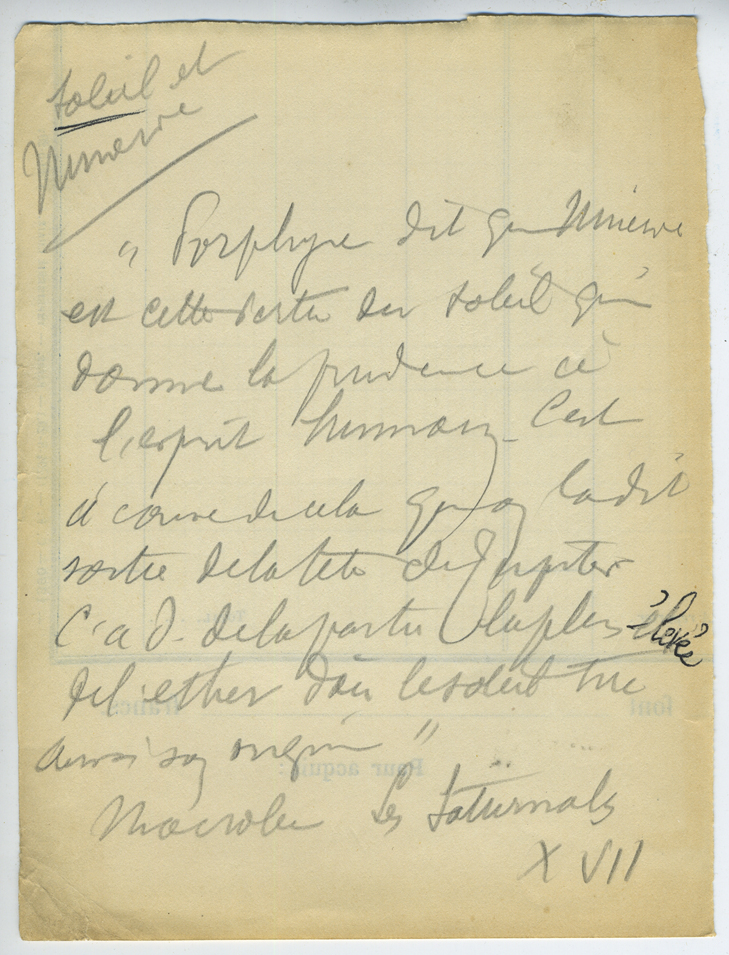 Soleil et
Minerve
" Porphyre dit que Minerve
est cette vertu du soleil qui
donne la prudence à
l'esprit humain. C'est
à cause de cela qu'on la dit
sortie de la tête de Jupiter
C. a d. de la partie la plus élevée
de l'ether d'où le soleil tire
aussi son origine "
Macrobe Les Saturnales
XVII
sont francs
Pour acquit